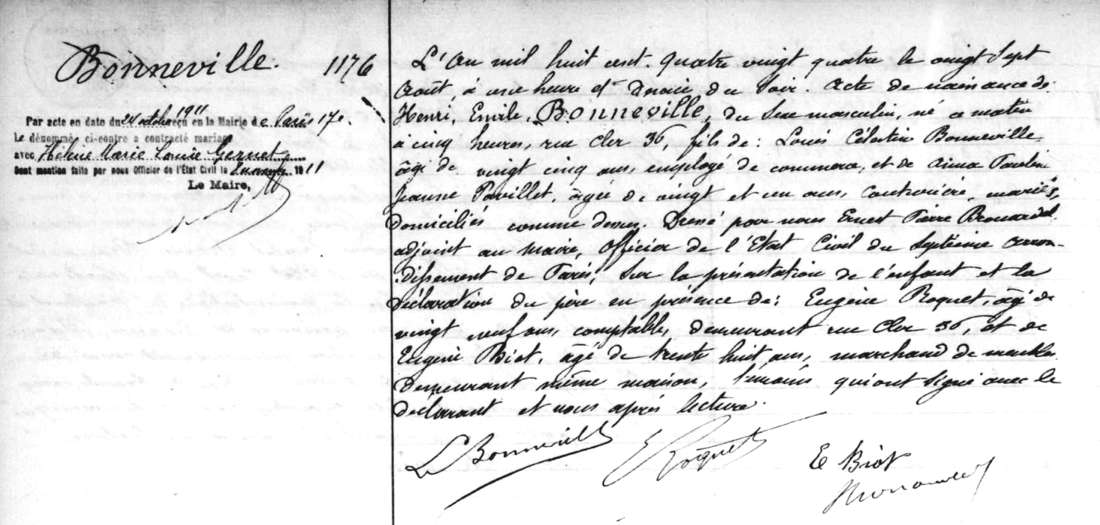 Bonneville. 1176
Par acte en date du 24 octobre 1911 reçu en la Mairie de Paris 17e.
Le dénommé ci-contre a contracté mariage
avec Hélène Marie Louise
Dont mention faite par nous Officier de l'État Civil le 1911
Le Maire,
L'An mil huit cent quatre vingt quatre le vingt Sept
Août à une heure et Demie du Soir. Acte de naissance de
Henri, Emile, Bonneville, du Sexe masculin, né ce matin
à cinq heures, rue Cler 36, fils de: Louis Célestin Bonneville
âgé de vingt cinq ans, employé de commerce, et de
Jeanne Pavillet, âgée de vingt et un ans, couturière, mariés,
domiciliés comme dessus. Dressé par nous Ernest Pierre Brouardel
adjoint au maire, Officier de l'Etat Civil du Septième arron-
dissement de Paris, Sur la présentation de l'enfant et la
Déclaration du père en présence de: Eugène Roquet, âgé de
vingt neuf ans, comptable, demeurant rue Cler 36, et de
Eugène Biot, âgé de trente huit ans, marchand de meubles
Demeurant même maison, témoins qui ont signé avec le
déclarant et nous après lecture.
L Bonneville E Roquet E Biot
Brouardel